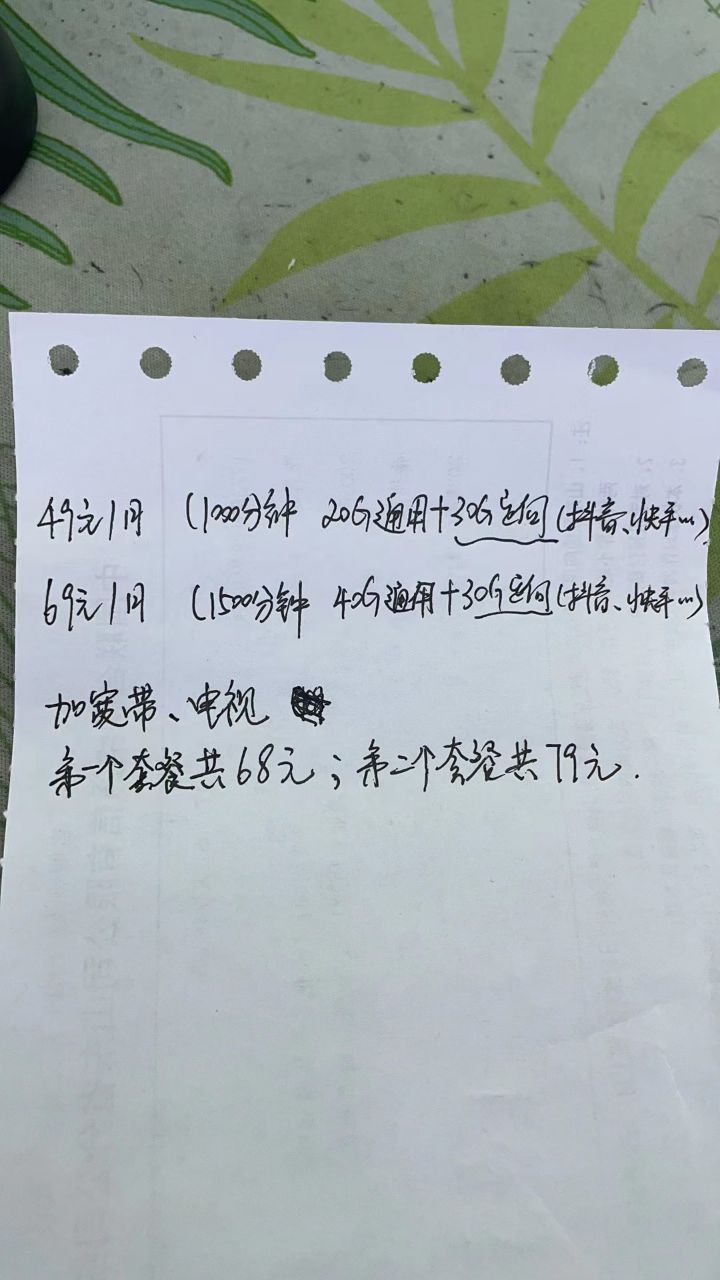 49元/月 (1000分钟 20G通用+30G定向(抖音、快手…)
69元/月 (1500分钟 40G通用+30G定向(抖音、快手…)
加宽带、电视
第一个套餐共68元；第二个套餐共79元.